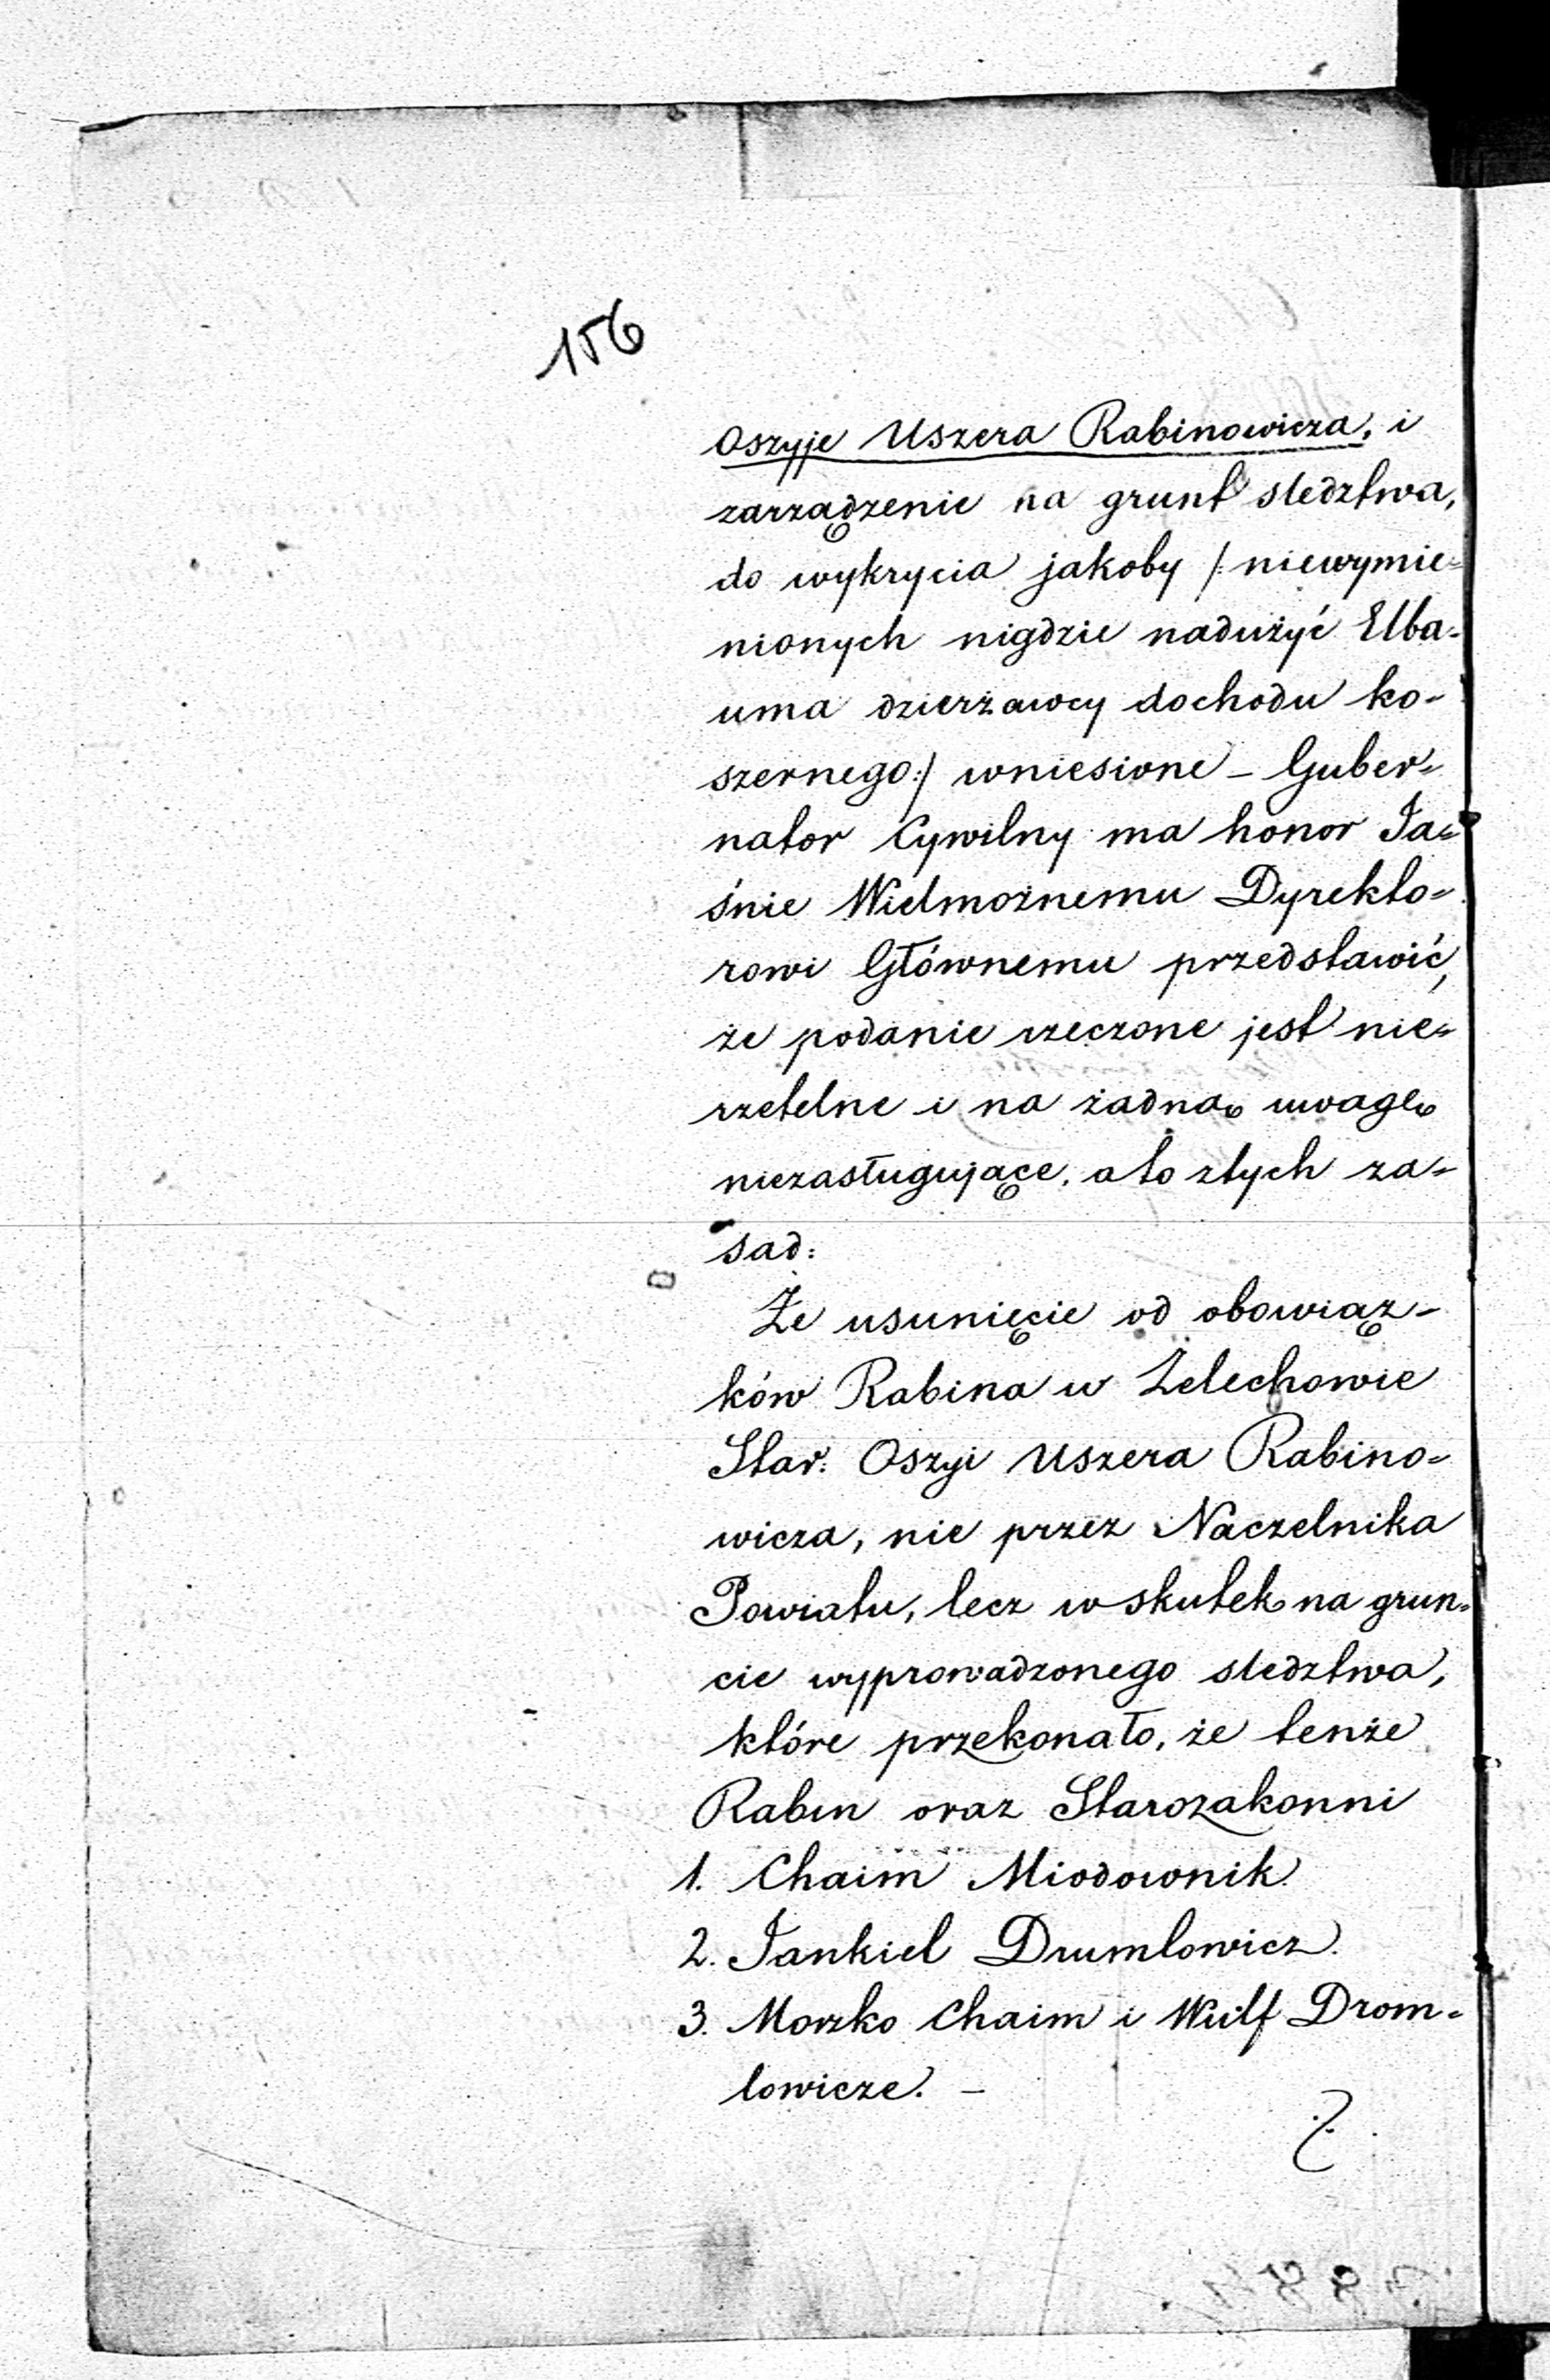 156
Oszyje Uszera Rabinowicza, i
zarządzenie na grunt sledztwa,
do wykrycia jakoby /: niewymie=
nionych nigdzie nadużyć Elba-
uma dzierżawcy dochodu ko-
szernego:/ wniesione – Guber=
nator Cywilny ma honor Ja=
śnie Wielmożnemu Dyrekto=
rowi Głównemu przedstawić,
że podanie rzeczone jest nie=
rzetelne i na żadną uwagę
niezasługujące, a to ztych za=
sad:
Że usunięcie od obowiąz-
ków Rabina w Żelechowie
Star: Oszyi Uszera Rabino=
wicza, nie przez Naczelnika
Powiatu, lecz wskutek na grun=
cie wyprowadzonego sledztwa,
które przekonało, że tenże
Rabin oraz Starozakonni
1. Chaim Miodownik.
2. Jankiel Drumlowicz.
3. Moszko Chaim i Wulf Drom=
lowicze. –